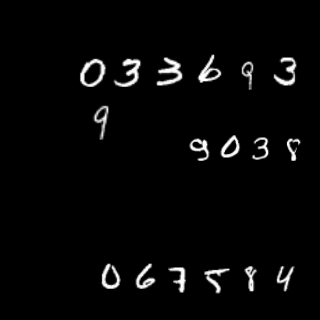 033693
9
9038
067584